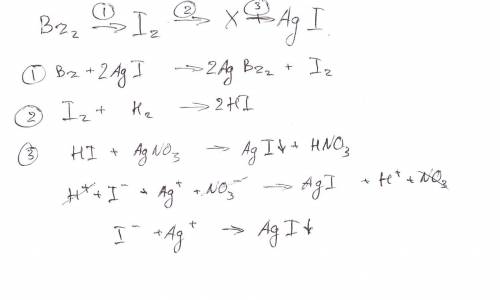 Br₂ ①→ I₂ ②→ X ③→ AgI
① Br₂ + 2AgI → 2AgBr₂ + I₂
② I₂ + H₂ → 2HI
③ HI + AgNO₃ → AgI↓ + HNO₃
H⁺ + I⁻ + Ag⁺ + NO₃⁻ → AgI + H⁺ + NO₃
I⁻ + Ag⁺ → AgI↓